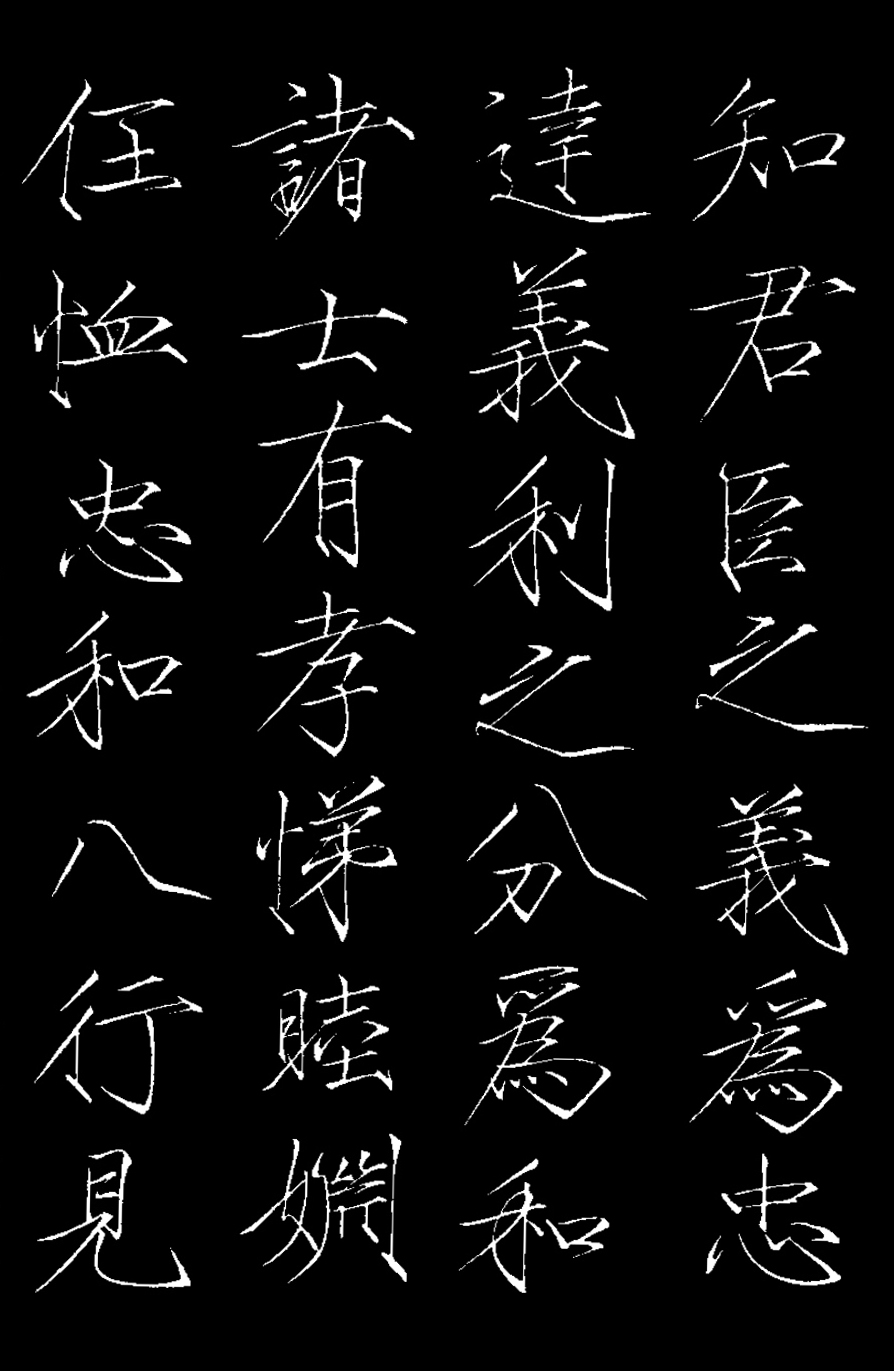 知君臣之義為忠
達義利之分為和
諸士有孝悌睦婣
任恤忠和八行見